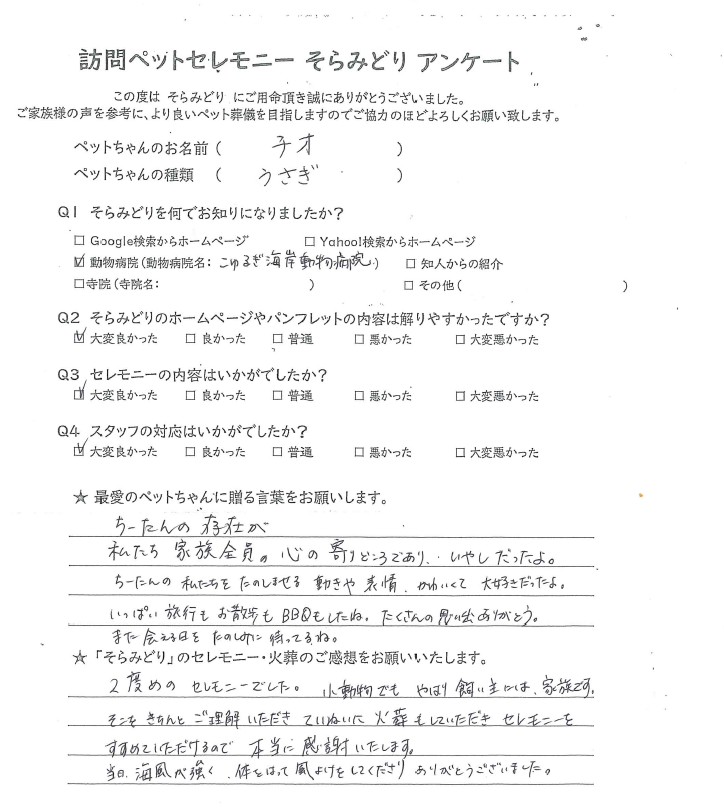 訪問ペットセレモニー そらみどり アンケート
この度は そらみどり にご用命頂き誠にありがとうございました。
ご家族様の声を参考に、より良いペット葬儀を目指しますのでご協力のほどよろしくお願い致します。
ペットちゃんのお名前 ( チオ )
ペットちゃんの種類 ( うさぎ )
Q1 そらみどりを何でお知りになりましたか？
□ Google検索からホームページ □ Yahoo!検索からホームページ
☑ 動物病院(動物病院名: こゆるぎ海岸動物病院) □ 知人からの紹介
□寺院(寺院名: ) □ その他( )
Q2 そらみどりのホームページやパンフレットの内容は解りやすかったですか？
☑ 大変良かった □ 良かった □ 普通 □ 悪かった □ 大変悪かった
Q3 セレモニーの内容はいかがでしたか？
☑ 大変良かった □ 良かった □ 普通 □ 悪かった □ 大変悪かった
Q4 スタッフの対応はいかがでしたか？
☑ 大変良かった □ 良かった □ 普通 □ 悪かった □ 大変悪かった
☆ 最愛のペットちゃんに贈る言葉をお願いします。
ちーたんの存在が
私たち家族全員の心の寄りどころであり、いやしだったよ。
ちーたんの私たちをたのしませる動きや表情、かわいくて大好きだったよ。
いっぱい旅行もお散歩もBBQもしたね。たくさんの思い出ありがとう。
また会える日をたのしみに待ってるね。
☆「そらみどり」のセレモニー・火葬のご感想をお願いいたします。
2度めのセレモニーでした。小動物でもやはり飼い主には、家族です。
そこをきちんとご理解いただきていねいに火葬もしていただきセレモニーを
すすめていただけるので本当に感謝いたします。
当日、海風が強く、体をはって風よけをしてくださりありがとうございました。